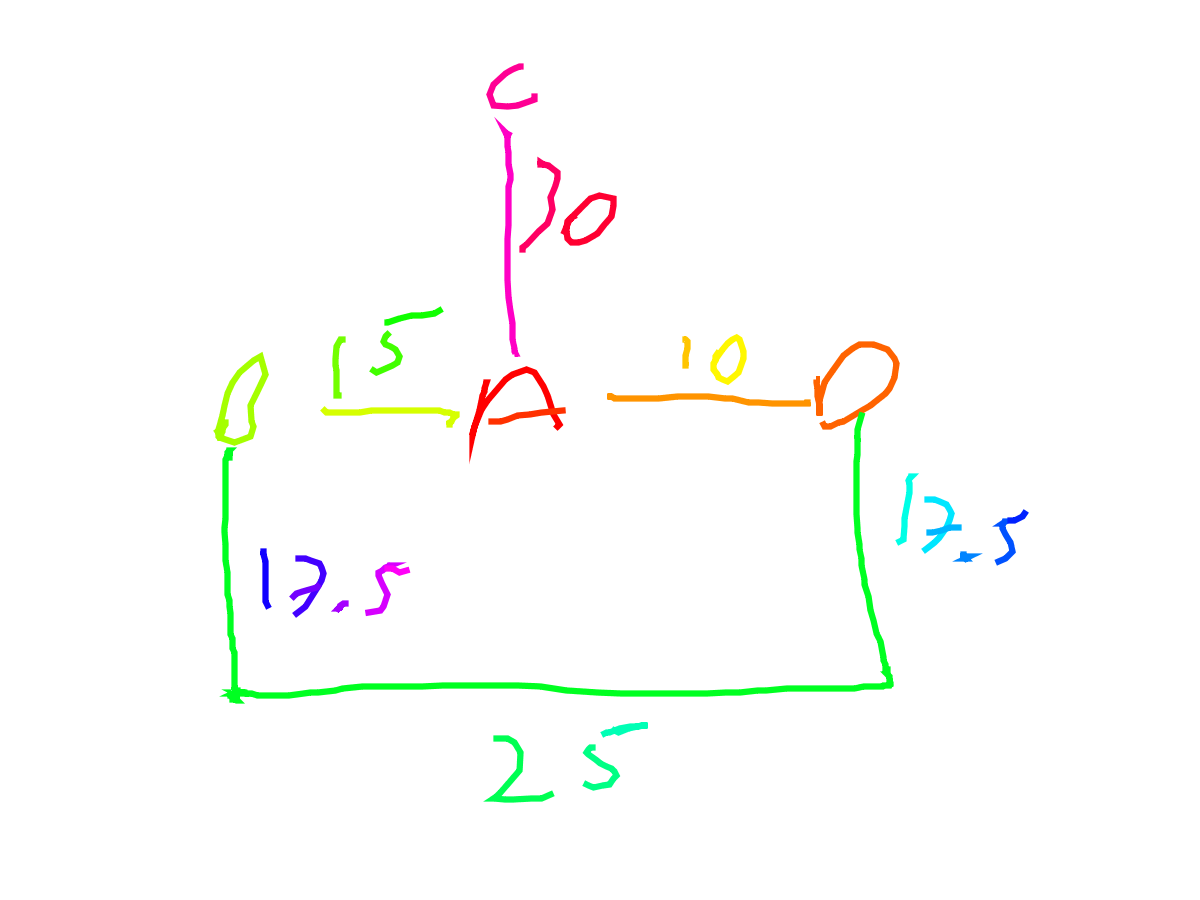 C
30
15 10
A D
17.5
17.5
25